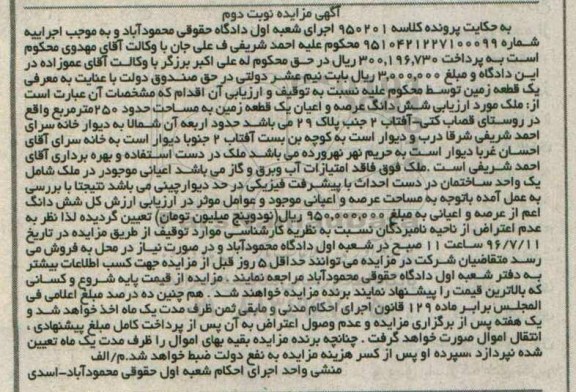 آگهی مزایده نوبت دوم
به حکایت پرونده کلاسه ۹۵۰۲۰۱ اجرای شعبه اول دادگاه حقوقی محمودآباد و به موجب اجراییه
شماره ۹۵۱۰۴۲۱۲۲۷۱۰۰۰۹۹ محکوم علیه احمد شریفی ف علی جان با وکالت آقای مهدوی محکوم
است به پرداخت ۳۰۰,۱۹۶,۷۳۰ ریال در حق محکوم له علی اکبر برزگر با وکالت آقای عموزاده در
این دادگاه و مبلغ ۳,۰۰۰,۰۰۰ ریال بابت نیم عشر دولتی در حق صندوق دولت با عنایت به معرفی
یک قطعه زمین توسط محکوم علیه نسبت به توقیف و ارزیابی آن اقدام که مشخصات آن عبارت است
از: ملک مورد ارزیابی شش دانگ عرصه و اعیان یک قطعه زمین به مساحت حدود ۲۵۰مترمربع واقع
در روستای قصاب کتی-آفتاب ۲ جنب پلاک ۲۹ می باشد حدود اربعه آن شمالا به دیوار خانه سرای
احمد شریفی شرقا درب و دیوار است به کوچه بن بست آفتاب ۲ جنوبا دیوار است به خانه سرای آقای
احسان غربا دیوار است به حریم نهر نهرورده می باشد ملک در دست استفاده و بهره برداری آقای
احمد شریفی است .ملک فوق فاقد امتیازات آب وبرق و گاز می باشد اعیانی موجودر در ملک شامل
یک واحد ساختمان در دست احداث با پیشرفت فیزیکی در حد دیوارچینی می باشد نتیجتا با بررسی
به عمل آمده باتوجه به مساحت عرصه و اعیانی موجود و عوامل موثر در ارزیابی ارزش کل شش دانگ
اعم از عرصه و اعیانی به مبلغ ۹۵۰,۰۰۰,۰۰۰ ریال(نودوپنج میلیون تومان) تعیین گردیده لذا نظر به
عدم اعتراض از ناحیه نامبردگان نسبت به نظریه کارشناسی موارد توقیف از طریق مزایده در تاریخ
۹۶/۷/۱۱ ساعت ۱۱ صبح در شعبه اول دادگاه محمودآباد و در صورت نیاز در محل به فروش می
رسد متقاضیان شرکت در مزایده می توانند حداقل ۵ روز قبل از مزایده جهت کسب اطلاعات بیشتر
به دفتر شعبه اول دادگاه حقوقی محمودآباد مراجعه نمایند . مزایده از قیمت پایه شروع و کسانی
که بالاترین قیمت را پیشنهاد نمایند برنده مزایده خواهند شد . هم چنین ده درصد مبلغ اعلامی فی
المجلس برابر ماده ۱۲۹ قانون اجرای احکام مدنی و مابقی ثمن ظرف مدت یک ماه اخذ خواهد شد و
یک هفته پس از برگزاری مزایده و عدم وصول اعتراض به آن پس از پرداخت کامل مبلغ پیشنهادی ،
انتقال اموال صورت خواهد گرفت . چنانچه برنده مزایده بقیه بهای اموال را ظرف مدت یک ماه تعیین
شده نپردازد ،سپرده او پس از کسر هزینه مزایده به نفع دولت ضبط خواهد شد.م/الف
منشی واحد اجرای احکام شعبه اول حقوقی محمودآباد-اسدی